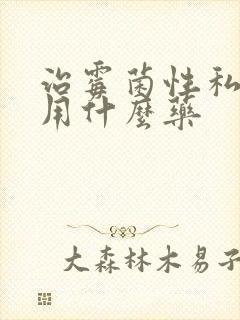 治霉菌性私
用什麼藥
大森林木易子